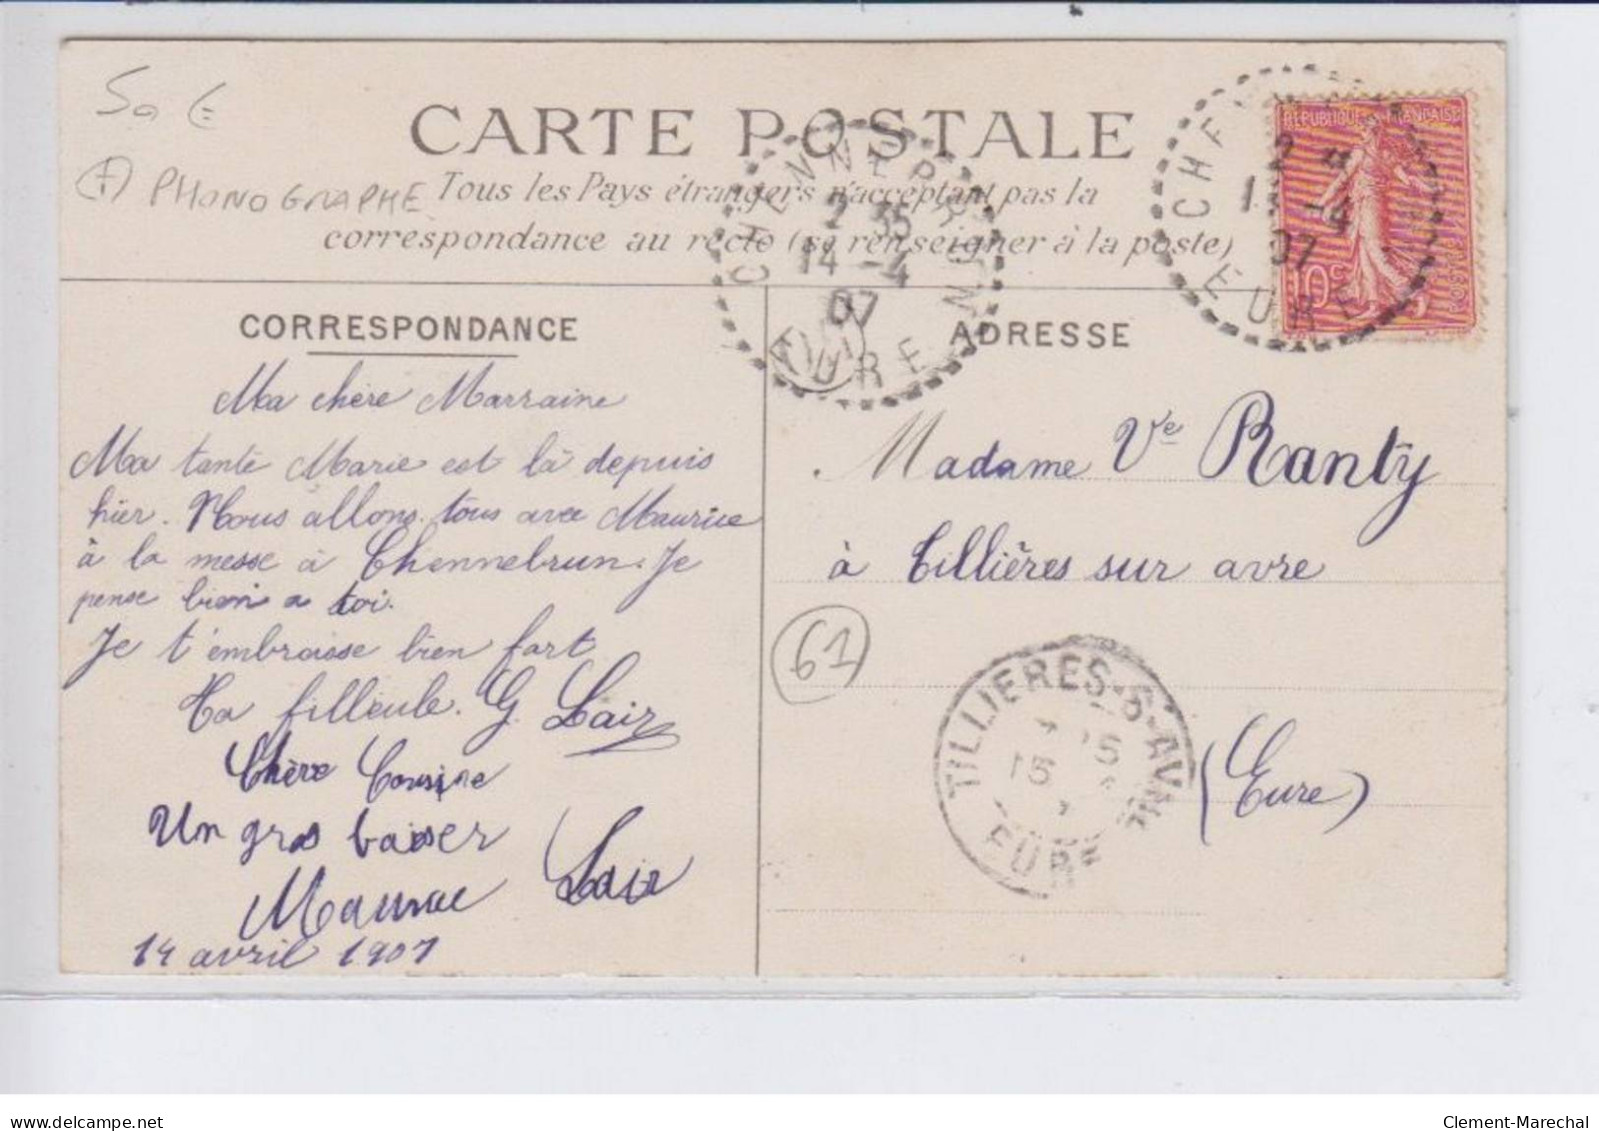 50 €
(+) PHONOGRAPHE
CARTE POSTALE
Tous les Pays étrangers n'acceptant pas la
correspondance au recto (se renseigner à la poste)
CHENNEBRUN
2 35
14 -4
07
EURE
RÉPUBLIQUE FRANÇAISE
10c POSTES
2
-4
07
EURE
CORRESPONDANCE
Ma chère Marraine
Ma tante Marie est là depuis
hier. Nous allons tous avec Maurice
à la messe à Chennebrun. Je
pense bien a toi.
Je t'embrasse bien fort
Ta filleule. G. Lair
Chère Cousine
Un gros baiser
Maurice Lair
14 avril 1907
ADRESSE
Madame Ve Ranty
à Tillières sur avre
(Eure)
61
TILLIERES-S-AVRE
15
EURE
delcampe.net
Clement-Marechal